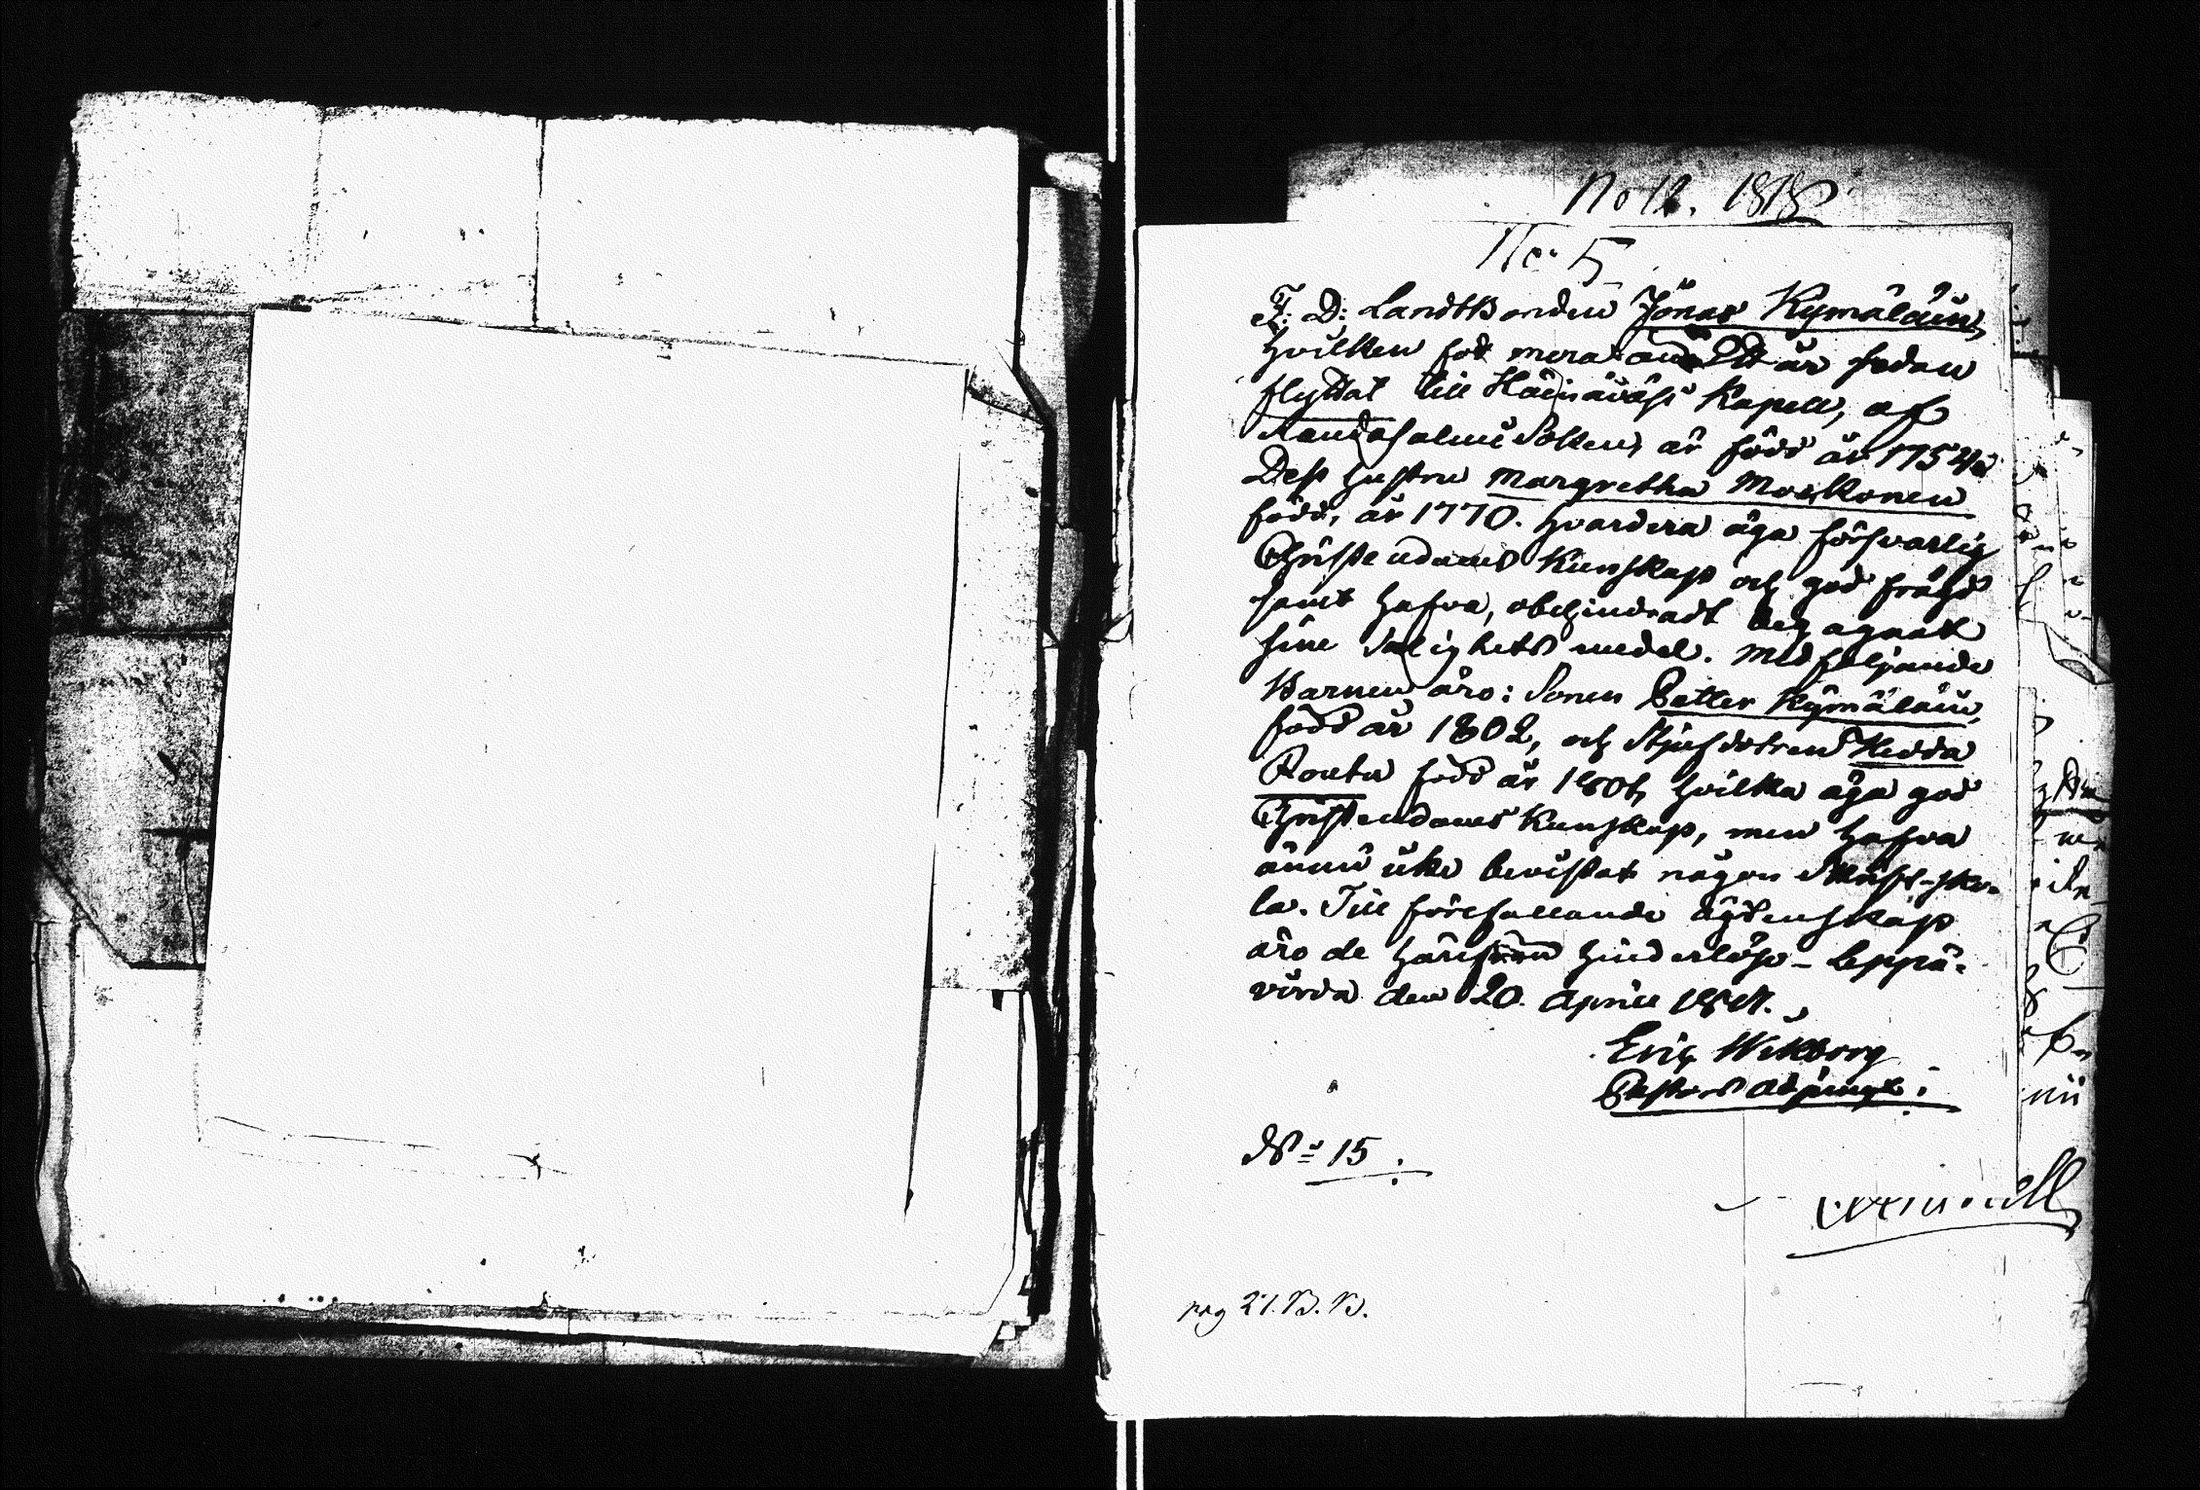 No 12. 1818
No 5
F: D: Landtbonden Jonas Kymäläin,
hvilken för mera än Ett år sedan
flyttat till Häinäväsi Kapell, af
Randasalmi Sokken, är född år 1754,
Dess hustru Margretha Moskonen
född, år 1770. hvardera äga försvarlig
Christendoms Kunskap och god frägd
samt hafva, obehindradt begagnat
sine Salighets medel. Medföljande
Barnen äro: Sonen Petter Kymäläin,
född år 1802, och Stjufdotren Hedda
Routu född år 1801, hvilka äga god
Christendoms Kunskap, men hafva
ännu icke bevistat någon Skrift-sko-
la. Till förefallande ägtenskap
äro de härifrån hinderlöse - Leppä-
virda den 20. April 1817.
Eric Wikborg
Pastors adjunct.
No 15.
pag 21. B. B.